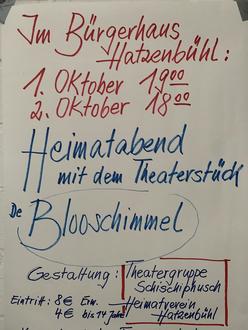 Im Bürgerhaus
Hatzenbühl:
1. Oktober 19⁰⁰
2. Oktober 18⁰⁰
Heimatabend
mit dem Theaterstück
De Blooschimmel
Gestaltung: Theatergruppe
Schischiphusch
Eintritt: 8€ Erw. Heimatverein
4€ bis 14 Jahre Hatzenbühl